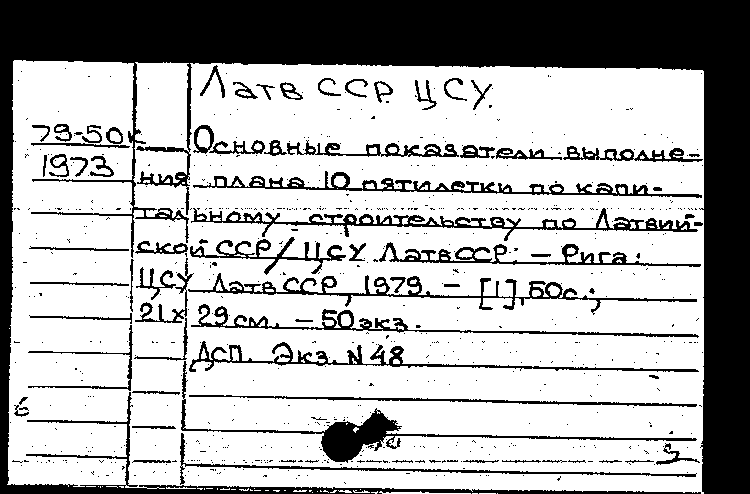 Латв ССР. ЦСУ.
79-50к Основные показатели выполне-
1973 ния плана 10 пятилетки по капи-
тальному строительству по Латвий-
ской ССР/ЦСУ ЛатвССР: – Рига:
ЦСУ ЛатвССР, 1979. – [1], 50с.;
21х29см. – 50экз.
ДСП. Экз. N 48
6